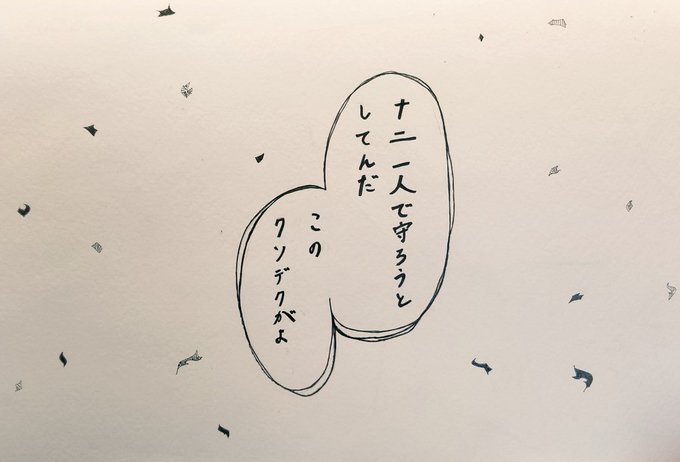 ナニ一人で守ろうと
してんだ
この
クソデクがよ